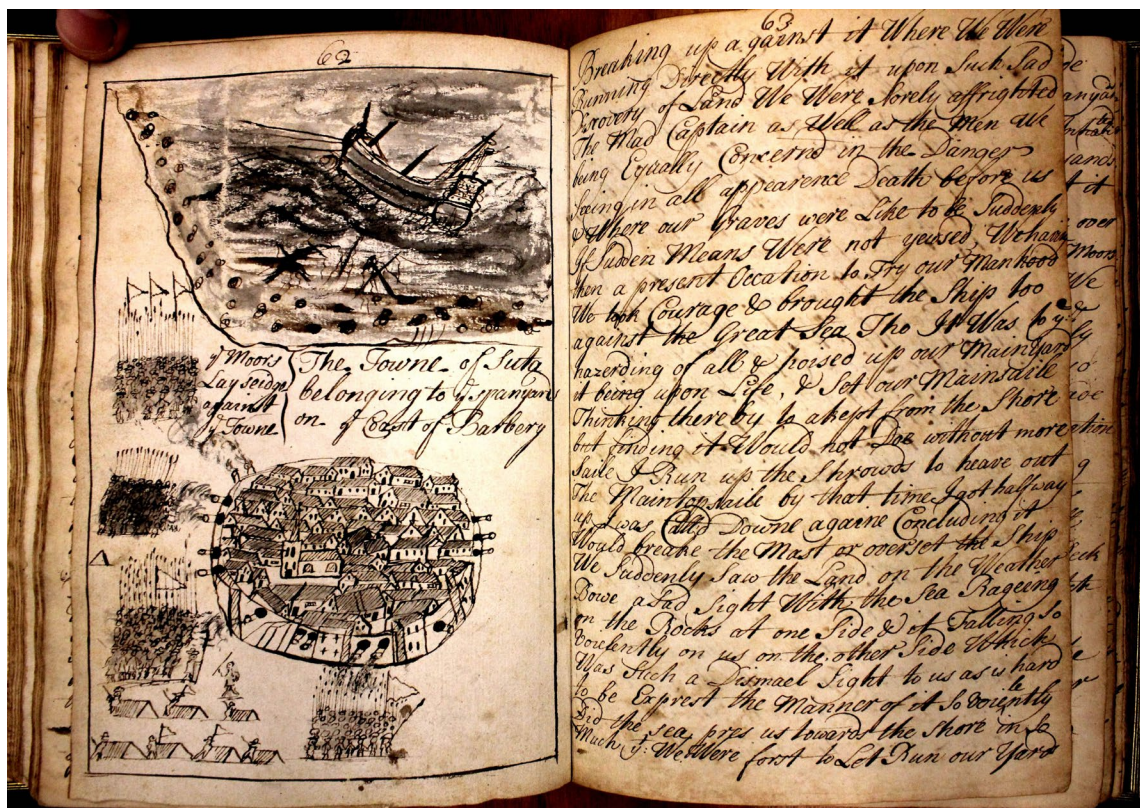 62
ye Moors
Lay seidge
against
ye Towne
The Towne of Suta
belonging to ye spanyars
on ye Coast of Barbery
63
Breaking up against it Where We Were
Running Directly With it upon Such Sad
Discovery of Land We Were Sorely affrighted
The Mad Captain as Well as the Men We
being Equally Concernd in the Danger
Seeing in all appearence Death before us
& Where our Graves were Like to be Suddenly
If Sudden Means Were not yeused
then a present Occation to Try our Manhood
We took Courage & brought the Ship too
against the Great Sea Tho It Was to ye
hazerding of all & hoised up our Mainyard
it being upon Life, & Set our Mainsaile
Thinking thereby to akept from the Shore
but finding it Would not Doe without more
Saile I Run up the Shrowds to heave out
The Maintopsaile by that time I got halfway
up I was Calld Downe againe Concluding it
Would breake the Mast or overset the Ship
We Suddenly Saw the Land on the Weather
Bowe a Sad Sight With the Sea Rageing
on the Rocks at one Side & of Falling So
voielently on us on the other Side Which
Was Such a Dismael Sight to us as is hard
to be Exprest the Manner of it So voielently
Did the Sea pres us towards the Shore in So
Much yt We Were forst to Let Run our Yard
de
ands
t it
over
Moors
We